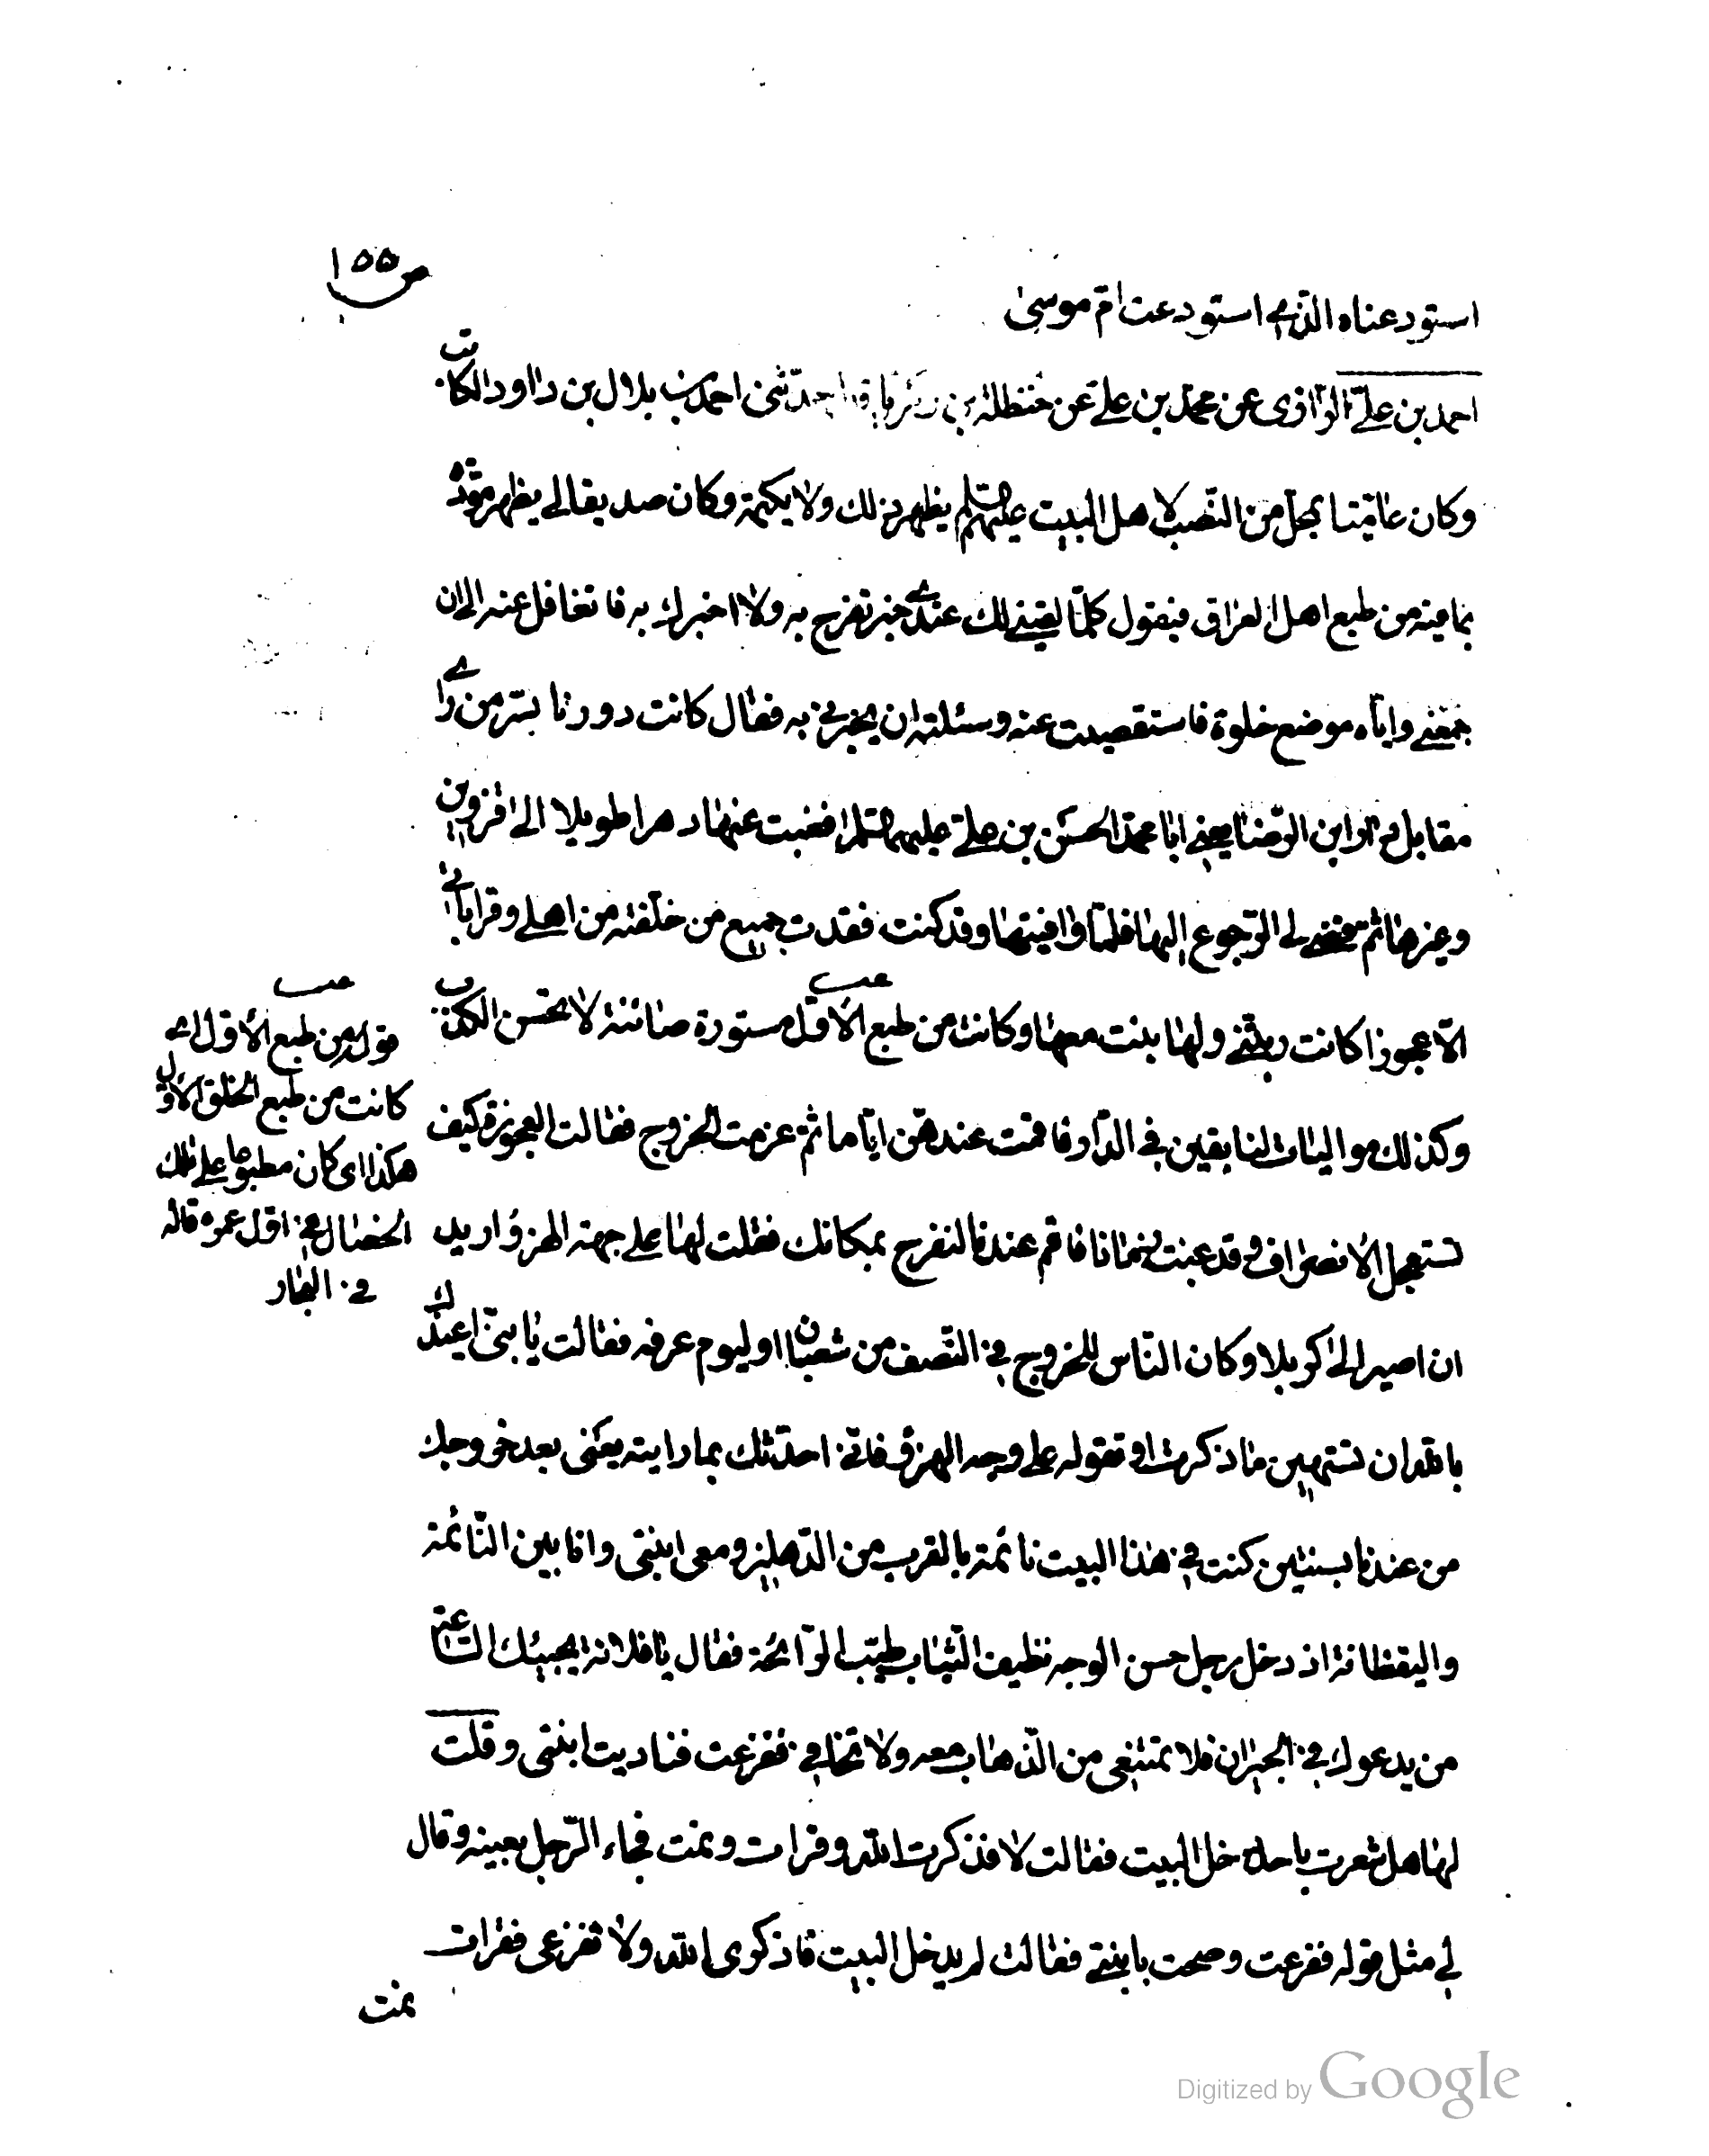 ص ١٥٥
استودعناه الذي استودعت ام موسى
احمد بن علي الرازي عن محمد بن علي عن حنظلة بن زكريا قال حدثني احمد بن بلال بن داود الكاتب
وكان عاميّا بمحل من النصب لاهل البيت عليهم السلم يظهر ذلك ولا يكتمه وكان صديقا لي يظهر مودة
بما فيه من طبع اهل العراق فيقول كلما لقيني لك عندي خبر تفرح به ولا اخبرك به فاتغافل عنه الى ان
جمعني واياه موضع خلوة فاستقصيت عنه وسئلته ان يخبرني به فقال كانت دورنا بسر من رأى
مقابل دار ابن الرضا يعني ابا محمد الحسن بن علي عليهما السلم فغبت عنها دهرا طويلا الى قزوين
وغيرها ثم قضى لي الرجوع اليها فلما وافيتها وقد كنت فقدت جميع من خلفته من اهلي وقراباتي
الا عجوزا كانت ربتني ولها بنت معها وكانت من طبع الاول مستورة صائنة لا تحسن الكذب
وكذلك مواليات لنا بقين في الدار فاقمت عندهن اياما ثم عزمت الخروج فقالت العجوزة كيف
تستعجل الانصراف وقد غبت زمانا فاقم عندنا لنفرح بمكانك فقلت لها على جهة الهزؤ اريد
ان اصير الى كربلا وكان الناس للخروج في النصف من شعبان او ليوم عرفه فقالت يا بني اعيذك
بالله ان تستهين ما ذكرت او تقوله على وجه الهزؤ فاني احدثك بما رايته يعنى بعد خروجك
من عندنا بسنتين كنت في هذا البيت نائمة بالقرب من الدهليز ومعى ابنتى وانا بين النائمة
واليقظانة اذ دخل رجل حسن الوجه نظيف الثياب طيب الرائحة فقال يا فلانة يجيئك الساعة
من يدعوك في الجيران فلا تمتنعي من الذهاب معه ولا تخافي ففزعت فناديت ابنتى وقلت
لها هل شعرت باحد دخل البيت فقالت لا فذكرت الله وقرات ونمت فجاء الرجل بعينه وقال
لي مثل قوله ففزعت وصحت بابنتي فقالت لم يدخل البيت فاذكرى الله ولا تفزعى فقرات
نمت
قوله من طبع الاول اي
كانت من طبع الخلق الاول
هكذا اى كان مطبوعا على تلك
الخصال في اول عمره قاله
في البحار
Digitized by Google